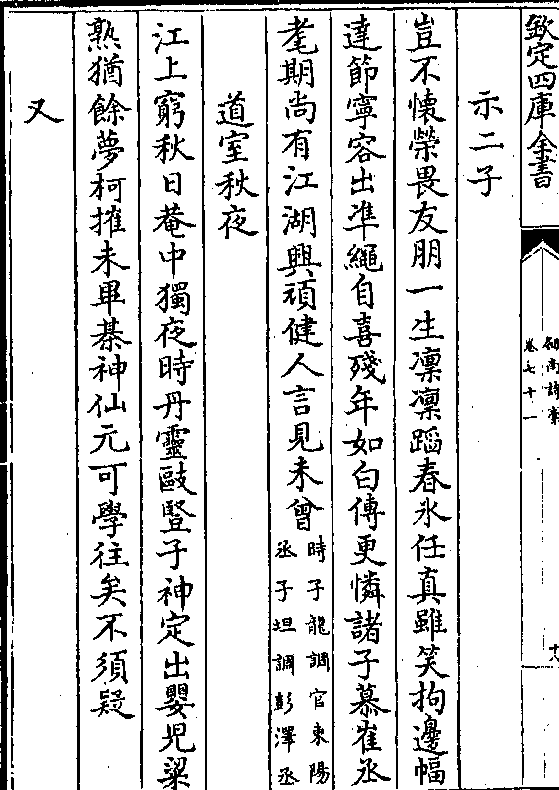 欽定四庫全書
劍南詩稾
卷七十一
示二子
豈不懷榮畏友朋一生凜凜蹈春氷任真雖笑拘邊幅
達節寧容出準繩自喜殘年如白傅更憐諸子慕崔丞
耄期尚有江湖興頑健人言見未曾
時子龍調官東陽
丞子坦調彭澤丞
道室秋夜
江上窮秋日菴中獨夜時丹靈敺豎子神定出嬰兒粱
熟猶餘夢柯摧未畢棊神仙元可學往矣不須疑
又